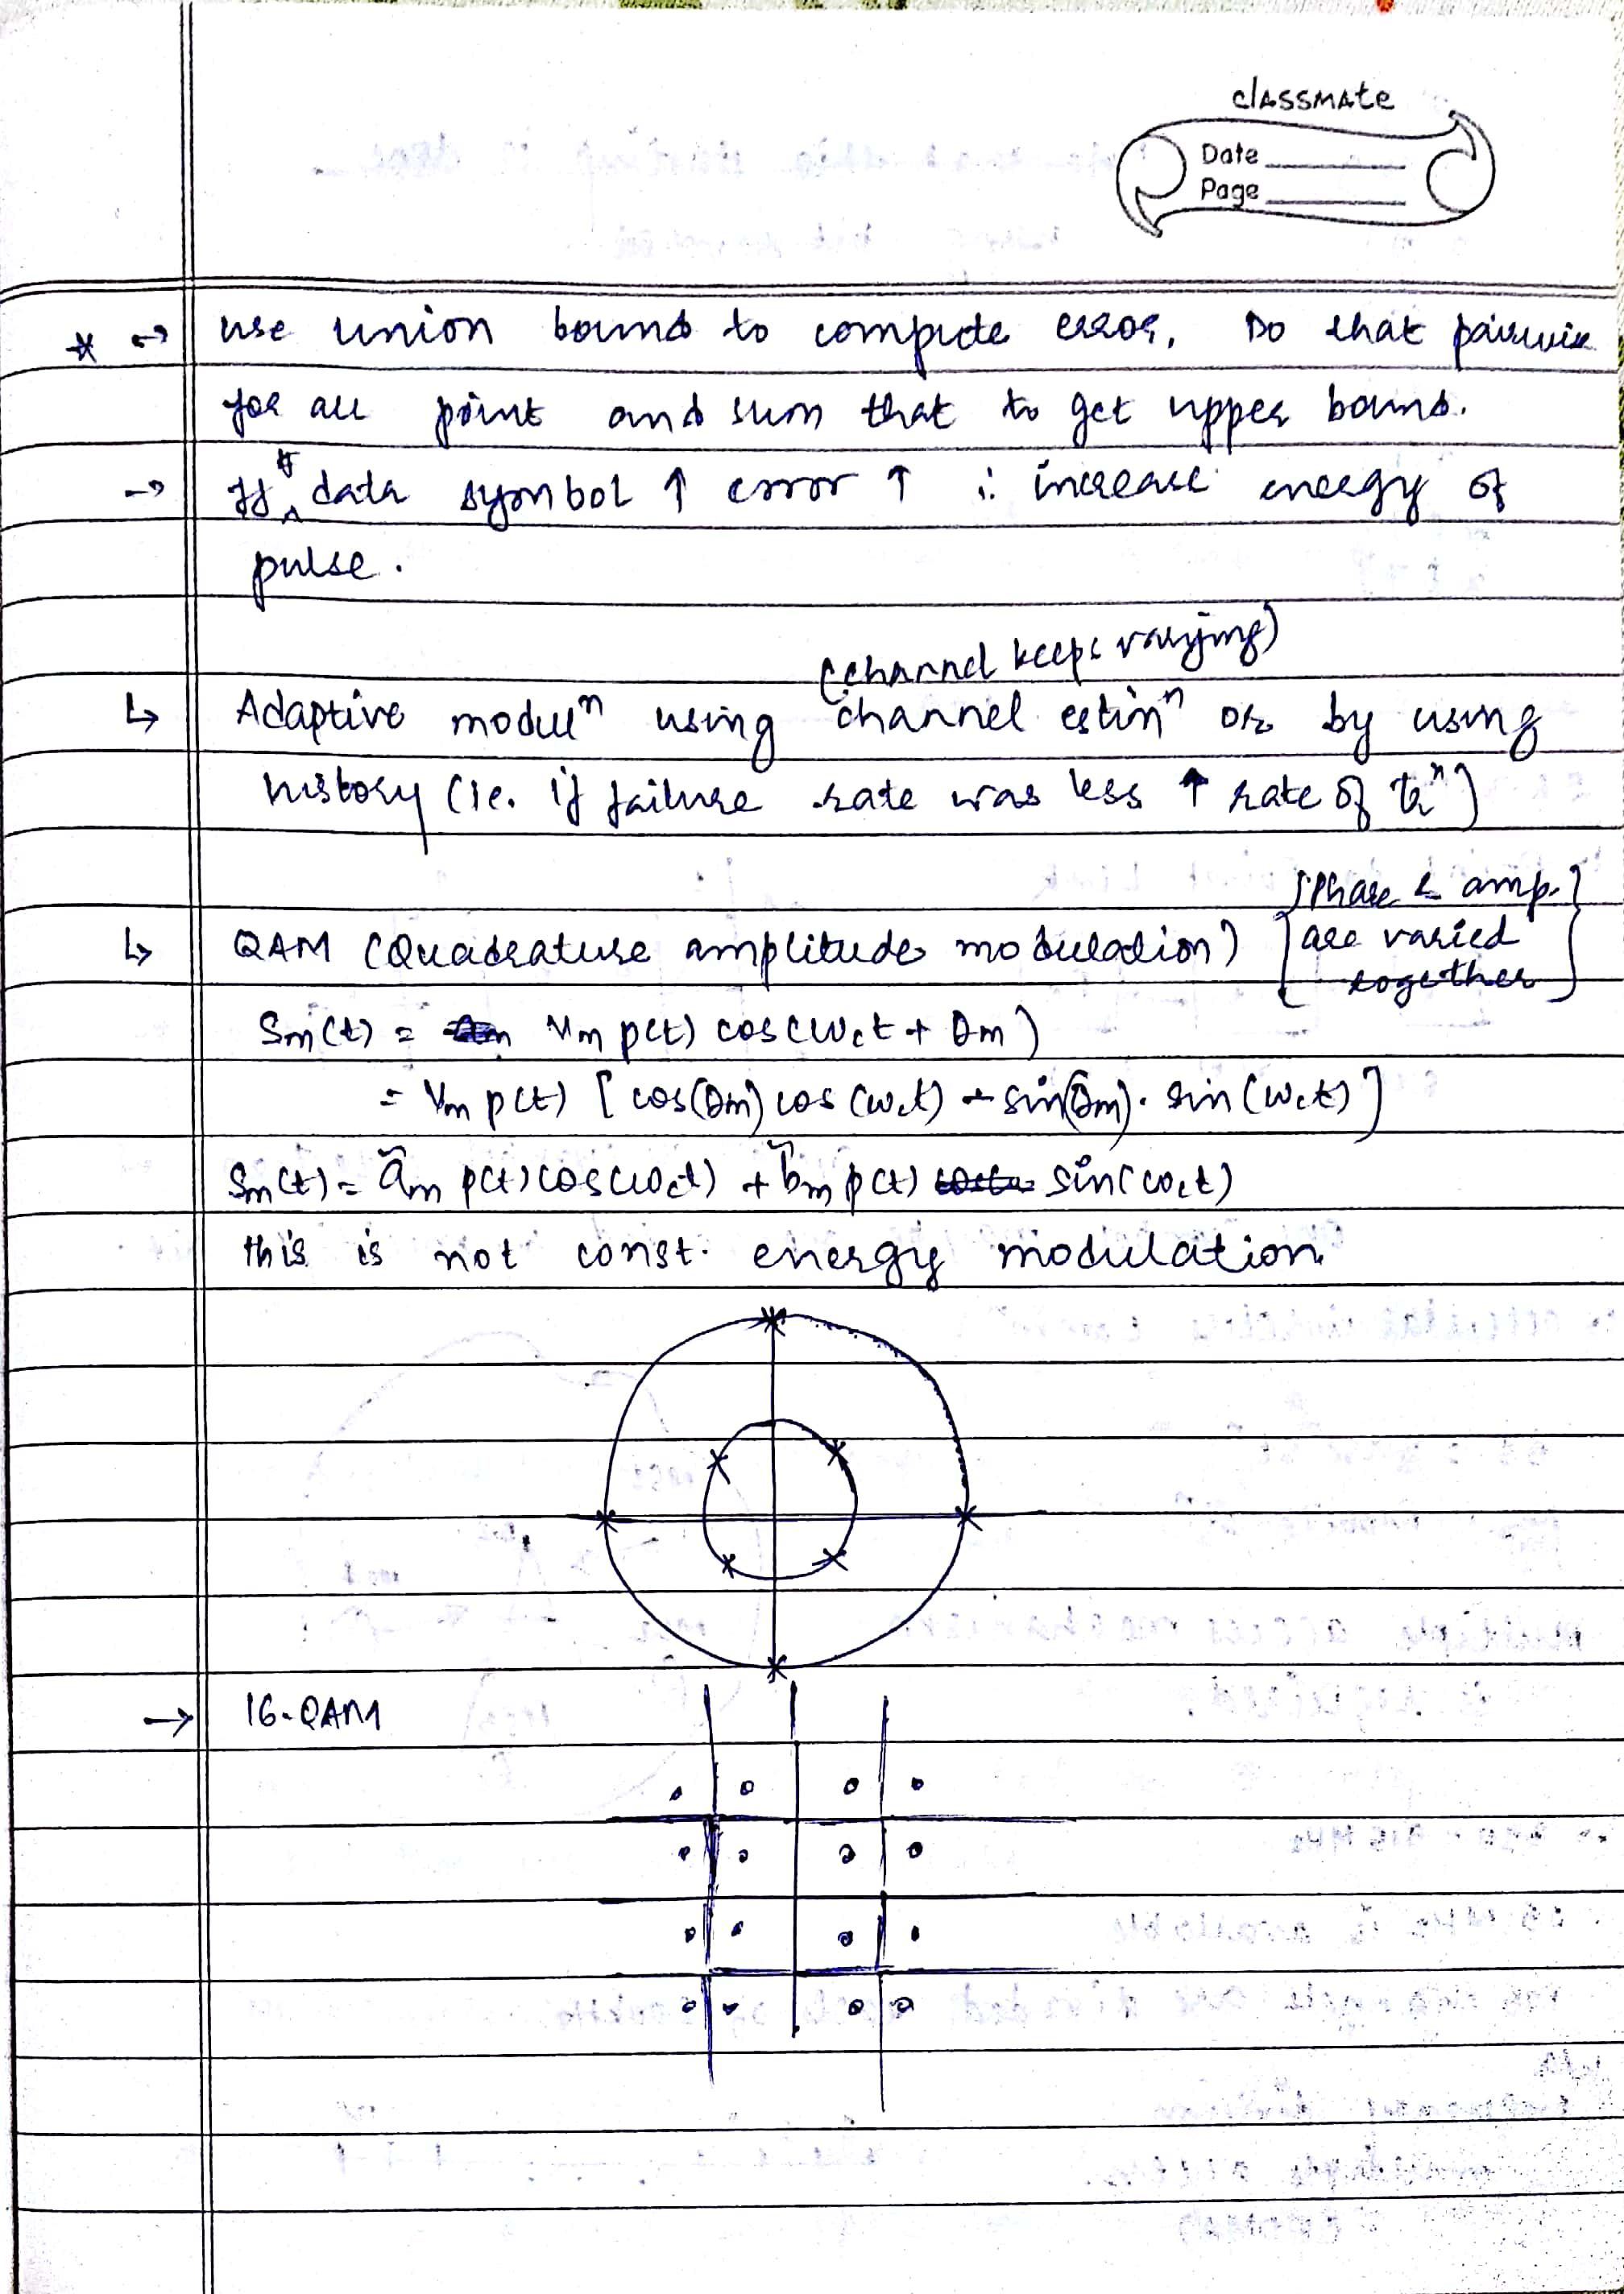 classmate
Date
Page
* → use union bound to compute error. Do that pairwise
for all point and sum that to get upper bound.
→ If # data symbol ↑ error ↑ ∴ increase energy of
pulse.
(channel keeps varying)
↳ Adaptive modulⁿ using channel estimⁿ or by using
history (ie. if failure rate was less ↑ rate of trⁿ)
↳ QAM (Quadrature amplitude modulation) {Phase & amp.
are varied
together}
Sm(t) = Vm p(t) cos(ωct + θm)
= Vm p(t) [cos(θm) cos(ωct) - sin(θm). sin(ωct)]
Sm(t) = ãm p(t) cos(ωct) + b̃m p(t) sin(ωct)
this is not const. energy modulation.
→ 16-QAM